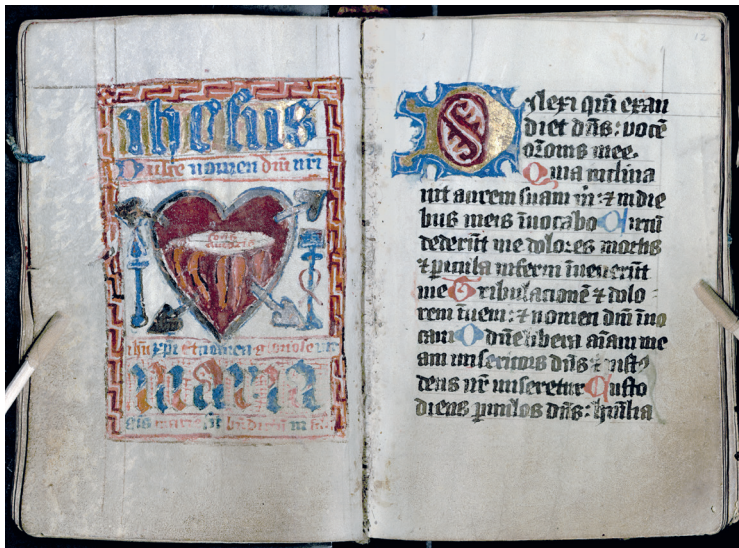 ihesus
Dulce nomen dñi nri
fons
ihũ xpi et nomen gloriose
maria
12
Dilexi qm̃ exau
diet dñs: vocẽ
orõnis mee.
Quia inclina
uit aurem suam m̃: ⁊ in die
bus meis ĩuocabo Circũ
dederũt me dolores mortis
⁊ picula inferni ĩuenerũt
me Tribulacionẽ ⁊ dolo
rem ĩueni: ⁊ nomen dñi ĩuo
caui O dñe libera aĩam me
am misericors dñs ⁊ iusto
deus nr̃ miseretur Custo
diens puulos dñs: humilia